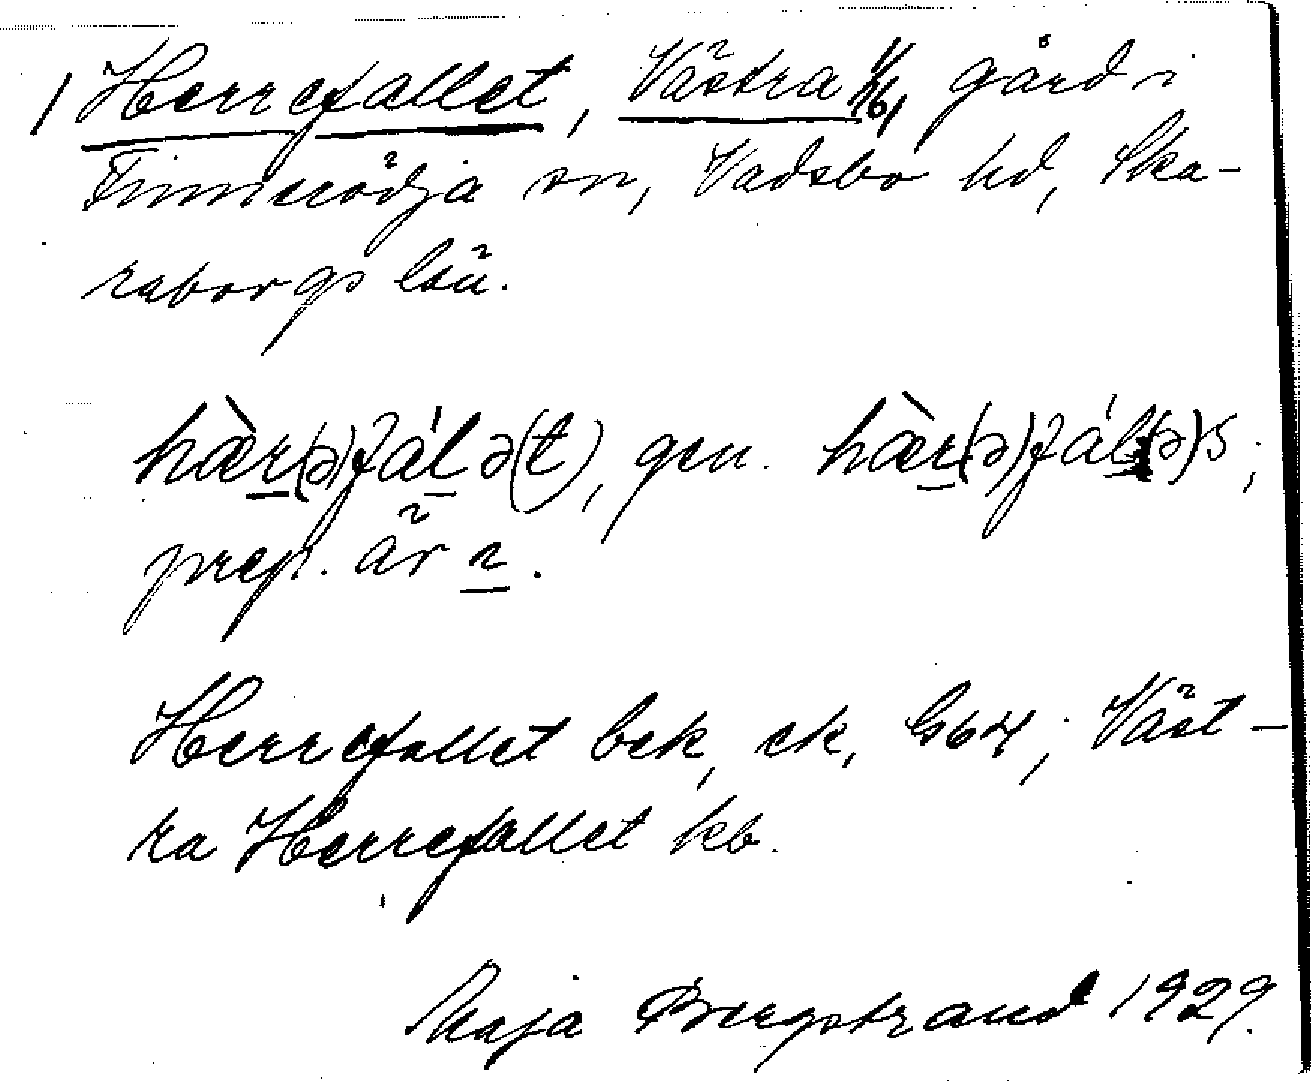 1 Herrefallet, Västra 1/1, gård i
Finnerödja sn, Vadsbo hd, Ska-
raborgs län.
hær(ə)fálə(t), gen. hær(ə)fál(ə)s;
prep. är i.
Herrefallet bek, ek, G64; Väst-
ra Herrefallet kb.
Maja Bergstrand 1929.